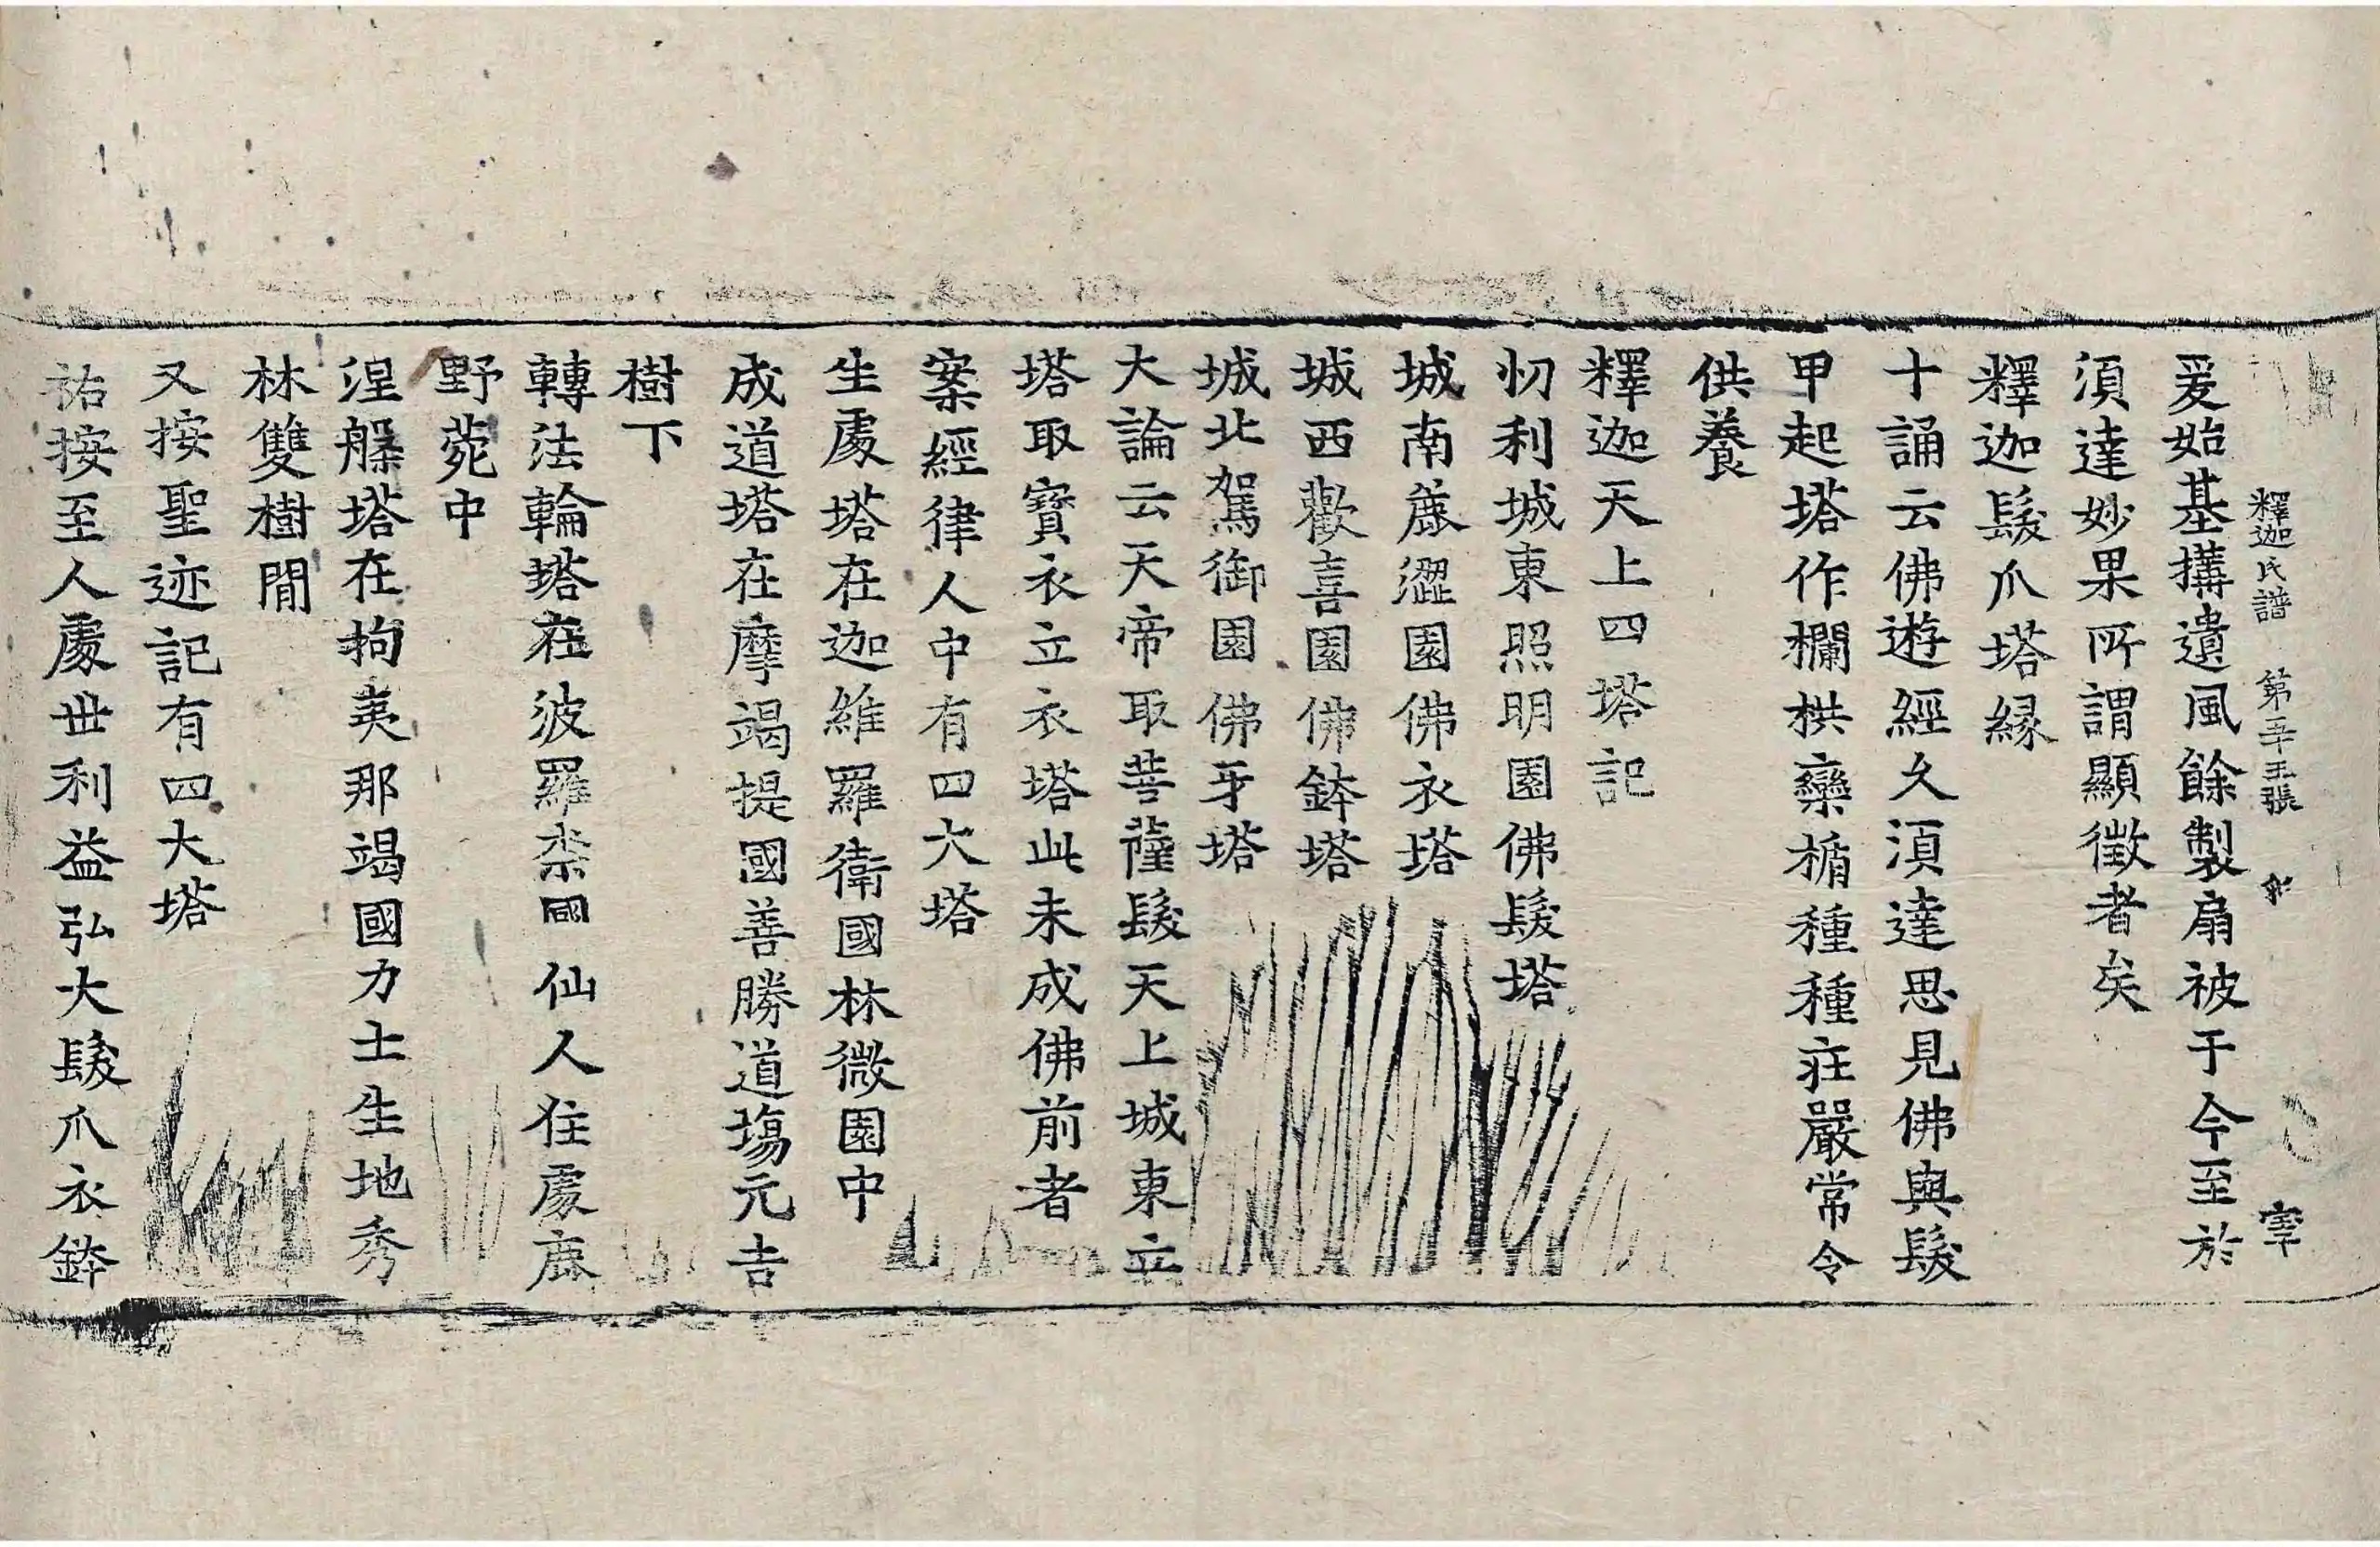 釋迦氏譜 第五十五張 宰
爰始基搆遺風餘製扇被于今至於
湏達妙果所謂顯徵者矣
釋迦髮爪塔緣
十誦云佛遊經久湏達思見佛與髮
甲起塔作欄栱欒楯種種莊嚴常令
供養
釋迦天上四塔記
忉利城東照明園佛髮塔
城南麁澀園佛衣塔
城西歡喜園佛鉢塔
城北駕御園佛牙塔
大論云天帝取菩薩髮天上城東立
塔取寶衣立衣塔此未成佛前者
案經律人中有四大塔
生處塔在迦維羅衛國林微園中
成道塔在摩竭提國善勝道場元吉
樹下
轉法輪塔在波羅柰國仙人住處鹿
野菀中
涅槃塔在拘夷那竭國力士生地秀
林雙樹間
又按聖迹記有四大塔
祐按至人處世利益弘大髮爪衣鉢